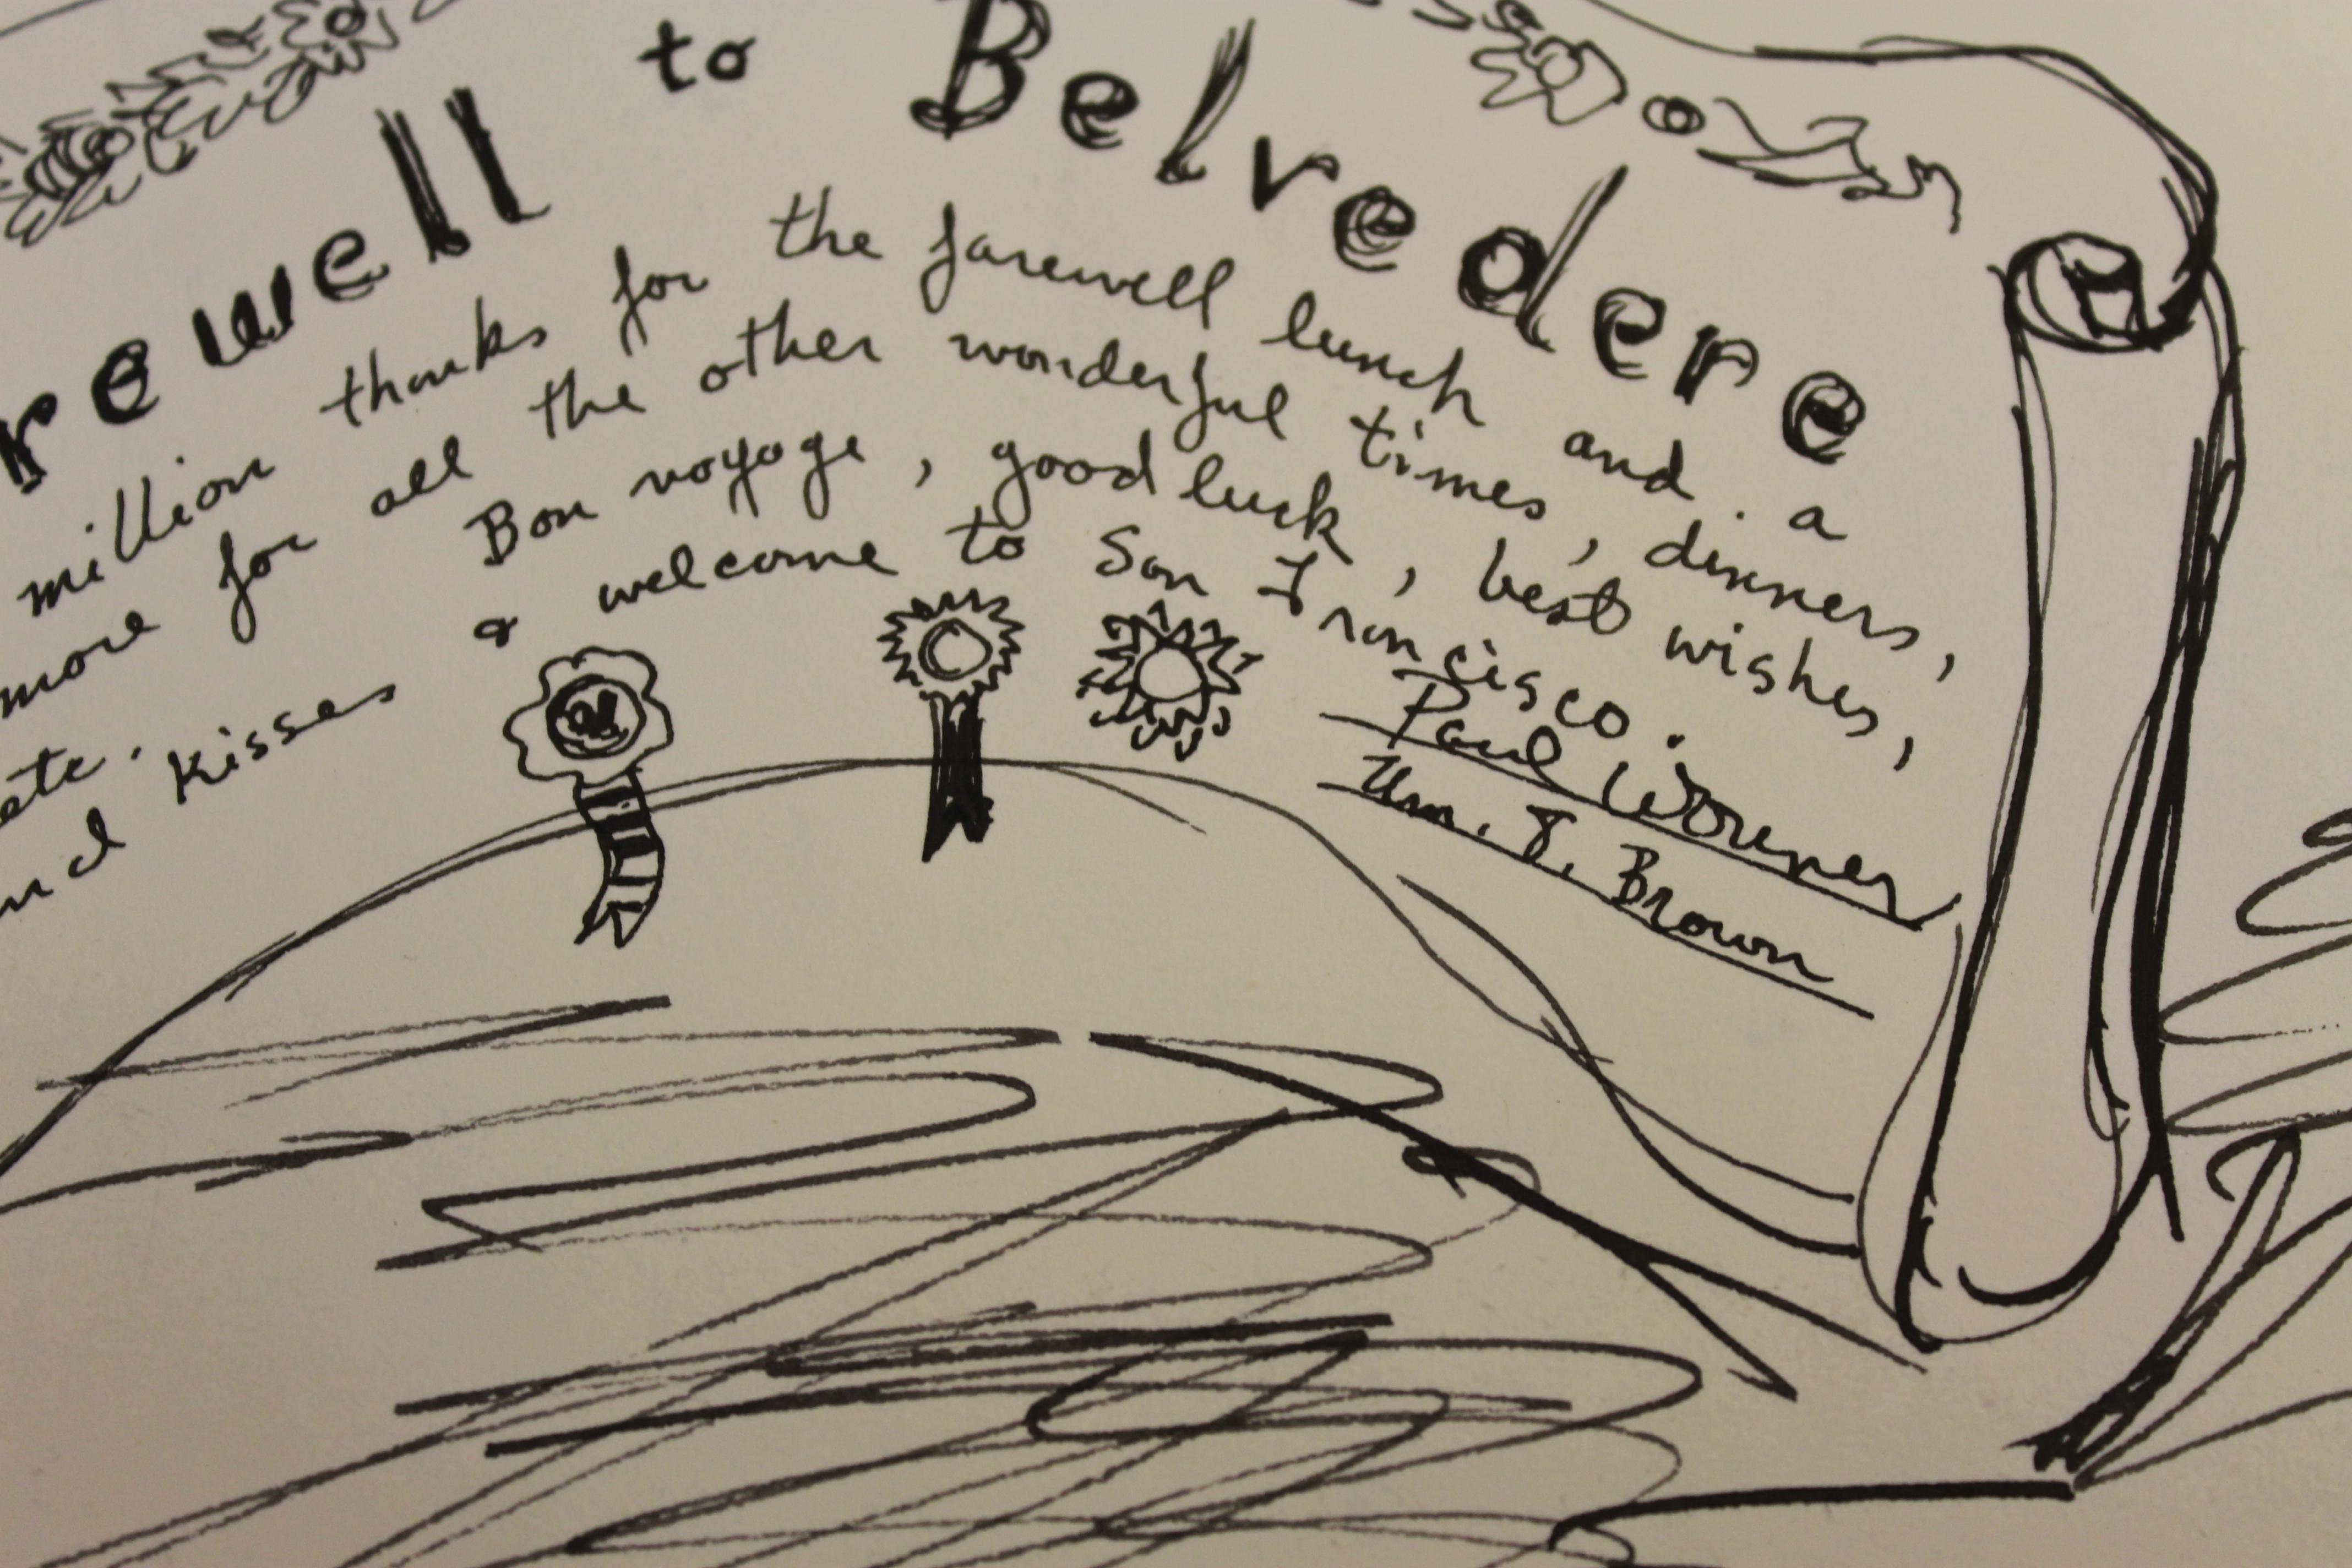 rewell to Belvedere
million thanks for the farewell lunch and a
more for all the other wonderful times, dinners,
etc. Bon voyage, good luck, best wishes,
and kisses & welcome to San Francisco.
Paul Wonner
Wm. T. Brown